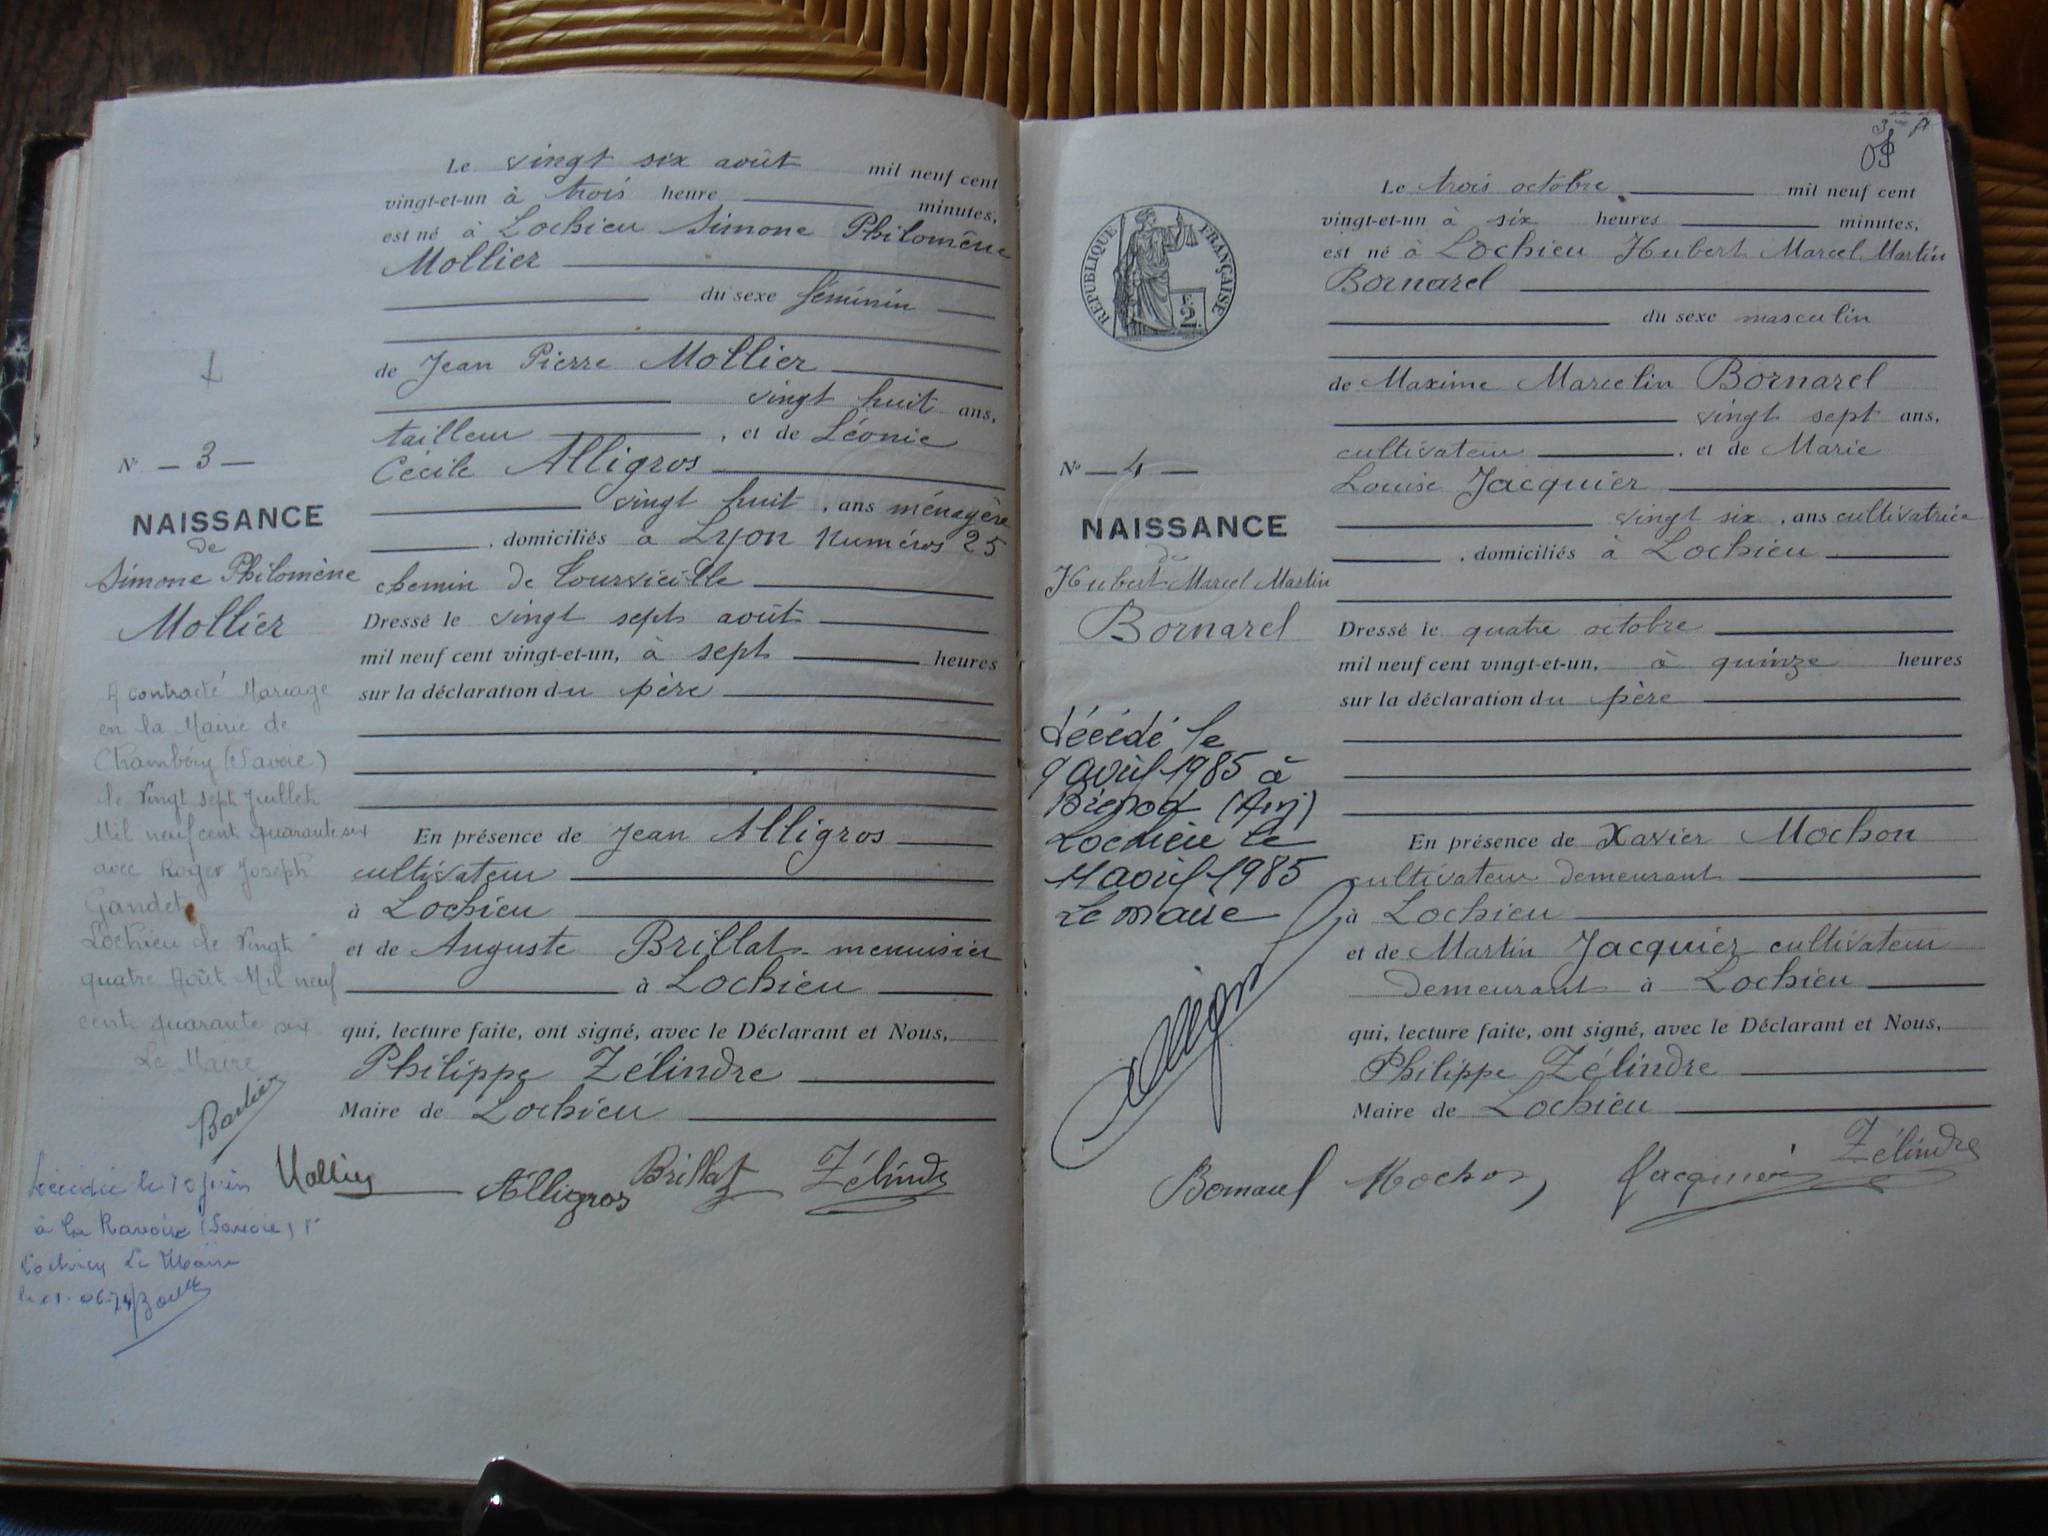 Le vingt six août mil neuf cent
vingt-et-un à trois heure minutes,
est né à Lochieu Simone Philomène
Mollier
du sexe féminin
de Jean Pierre Mollier
vingt huit ans,
tailleur , et de Léonie
Cécile Alligros
vingt huit , ans ménagère
, domiciliés à Lyon Numéros 25
chemin de Tourvieille
Dressé le vingt sept août
mil neuf cent vingt-et-un, à sept heures
sur la déclaration du père
En présence de Jean Alligros
cultivateur
à Lochieu
et de Auguste Brillat menuisier
à Lochieu
qui, lecture faite, ont signé, avec le Déclarant et Nous,
Philippe Zélindre
Maire de Lochieu
Mollier Alligros Brillat Zélindre
N° - 3 -
NAISSANCE
de
Simone Philomène
Mollier
A contracté Mariage
en la Mairie de
Chambéry (Savoie)
le Vingt sept Juillet
Mil neuf cent quarante six
avec Roger Joseph
Gandet
Lochieu le Vingt
quatre Août Mil neuf
cent quarante six
Le Maire
Décédée le 10 juin
à la Ravoire (Savoie)
Lochieu Le Maire
RÉPUBLIQUE FRANÇAISE
2
Le trois octobre mil neuf cent
vingt-et-un à six heures minutes,
est né à Lochieu Hubert Marcel Martin
Bornarel
du sexe masculin
de Maxime Marcelin Bornarel
vingt sept ans,
cultivateur , et de Marie
Louise Jacquier
vingt six , ans cultivatrice
, domiciliés à Lochieu
Dressé le quatre octobre
mil neuf cent vingt-et-un, à quinze heures
sur la déclaration du père
En présence de Xavier Mochon
cultivateur demeurant
à Lochieu
et de Martin Jacquier cultivateur
demeurant à Lochieu
qui, lecture faite, ont signé, avec le Déclarant et Nous,
Philippe Zélindre
Maire de Lochieu
Bornarel Mochon Jacquier Zélindre
N° - 4 -
NAISSANCE
de
Hubert Marcel Martin
Bornarel
décédé le
9 avril 1985 à
(Ain)
Lochieu le
11 avril 1985
Le maire